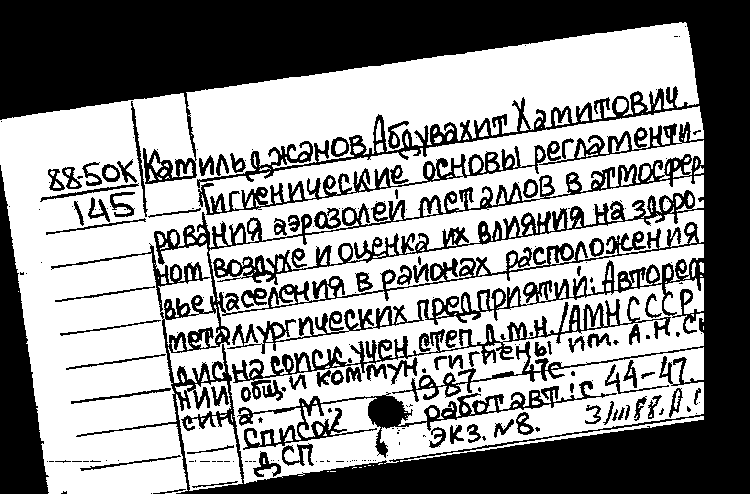 88-50К
145
Камильджанов, Абдувахит Хамитович.
Гигиенические основы регламенти-
рования аэрозолей металлов в атмосфер-
ном воздухе и оценка их влияния на здоро-
вье населения в районах расположения
металлургических предприятий: Автореф.
дис. на соиск. учен. степ. д.м.н. / АМН СССР.
НИИ общ. и коммун. гигиены им. А.Н. Сы
сина. — М. 1987. — 47с.
Список работ авт.: с. 44-47.
ДСП экз. №8.
3/III 88.